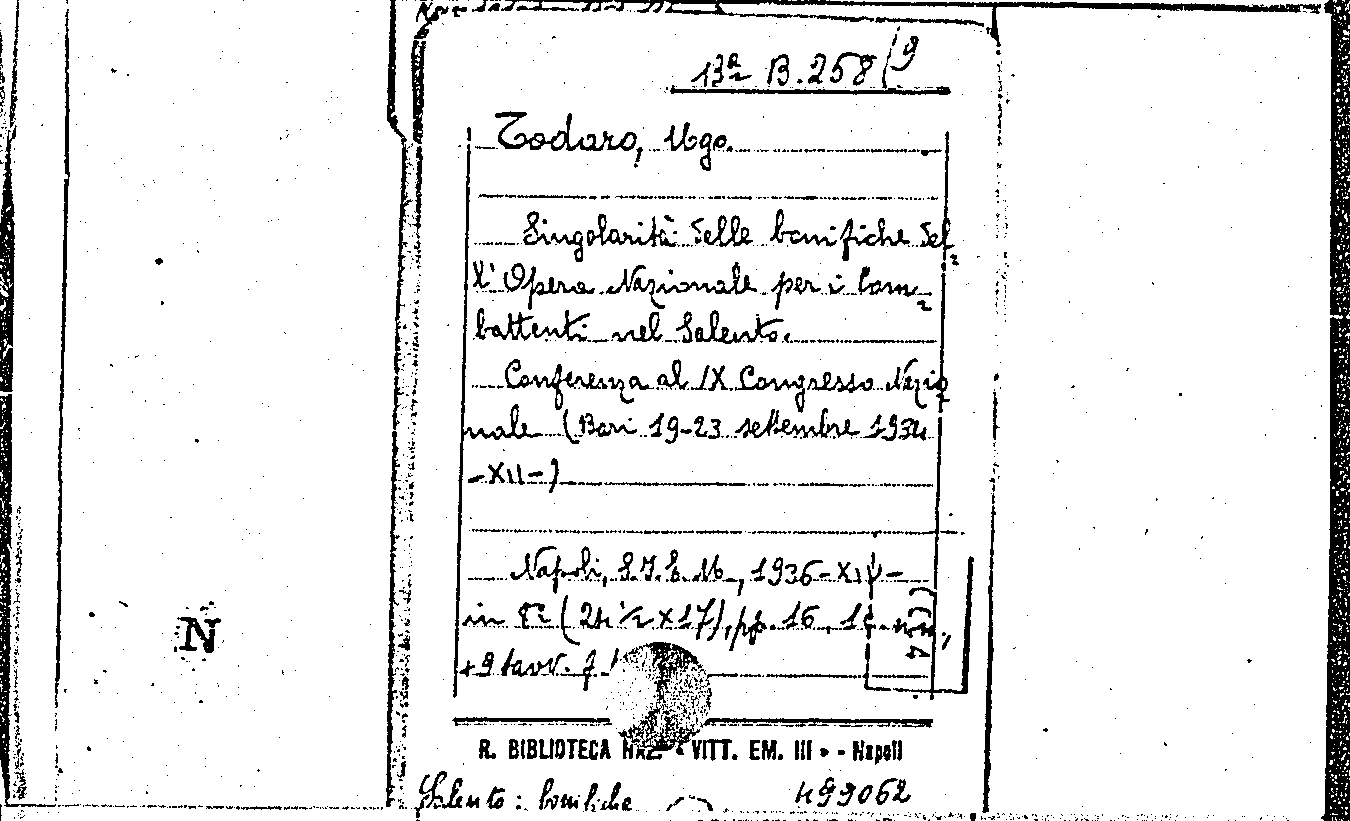 13ª B.258/9
Todaro, Ugo.
Singolarità delle bonifiche del=
l'Opera Nazionale per i Com=
battenti nel Salento.
Conferenza al IX Congresso Nazio=
nale (Bari 19-23 settembre 1934
-XII-)
Napoli, S.I.E.M., 1936-XIV-
in 8° (24 ½ x 17), pp. 16, 1 c. nn,
+ 9 tavv. f.
N
R. BIBLIOTECA NAZ. « VITT. EM. III » - Napoli
Salento: bonifiche 499062